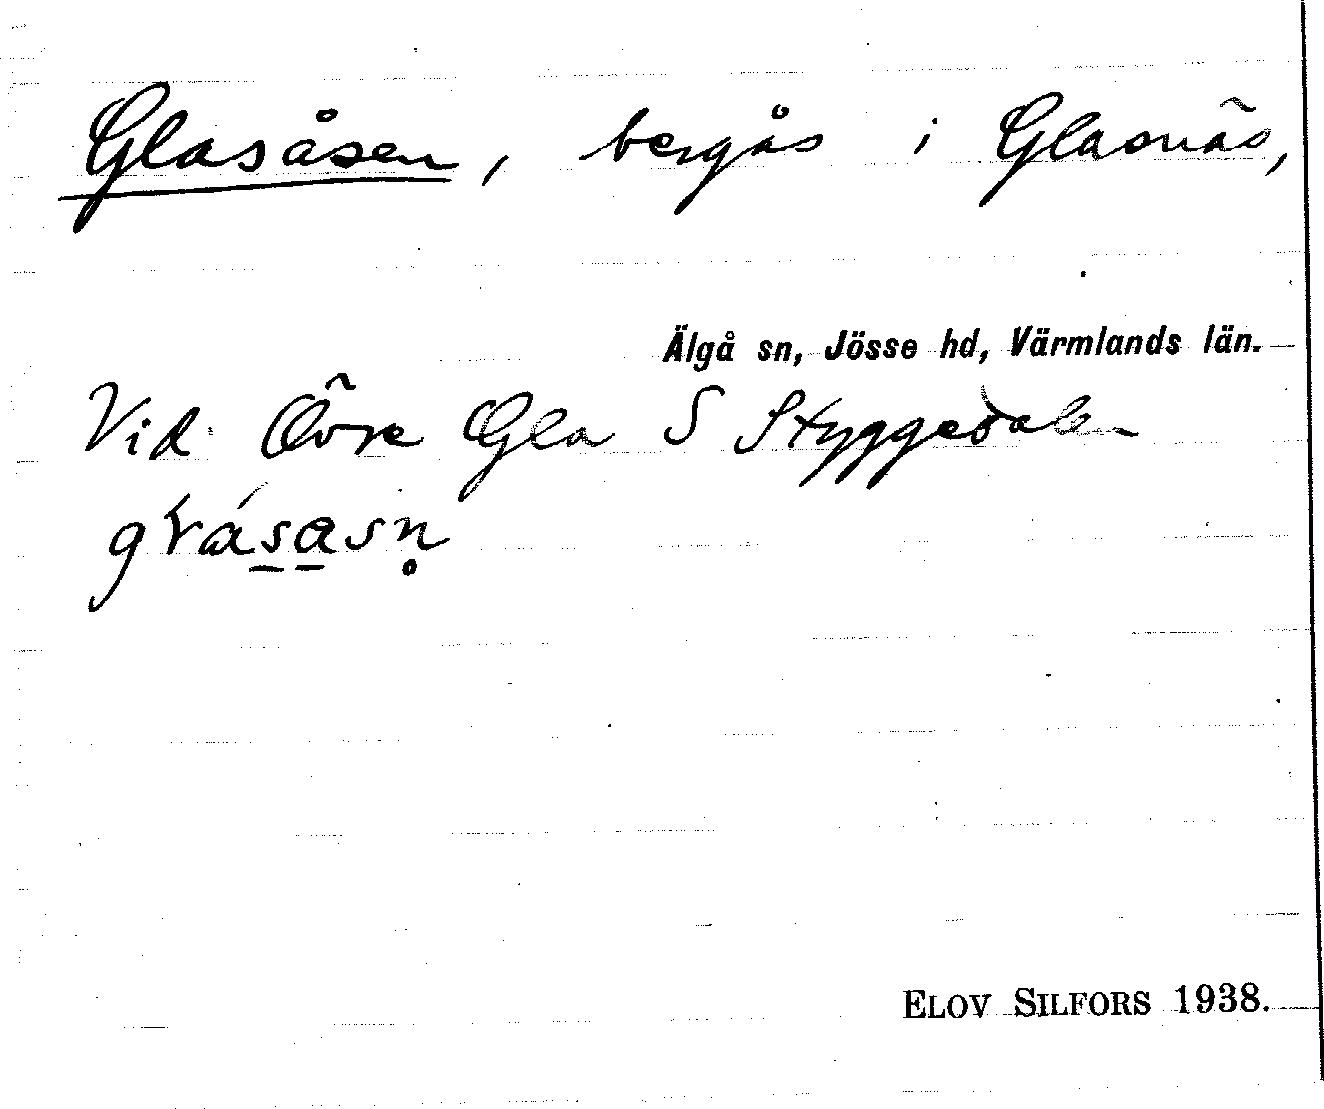 Glasåsen, bergås i Glasnäs,
Älgå sn, Jösse hd, Värmlands län.
Vid Övre Gla S Styggedalen
ELOV SILFORS 1938.